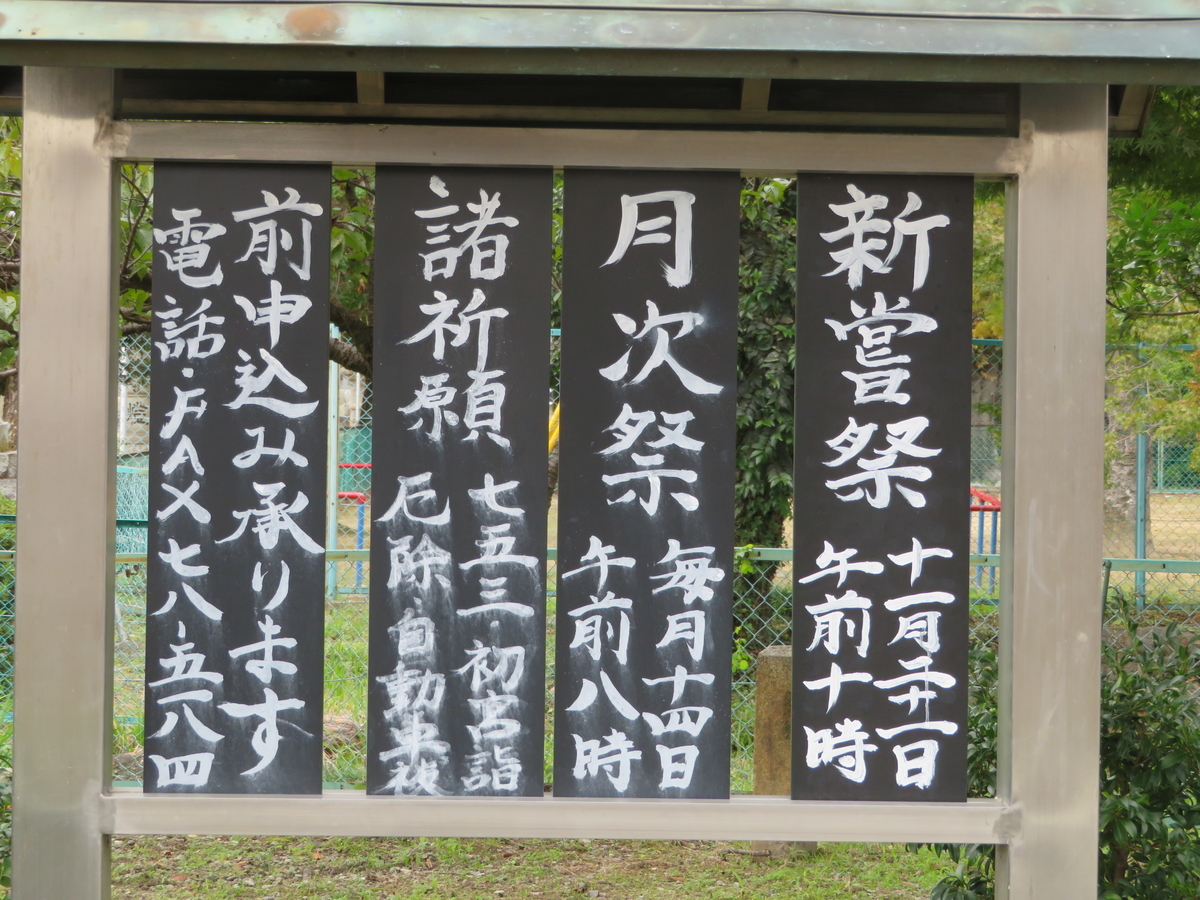 新嘗祭
十一月二十一日
午前十時
月次祭
毎月十四日
午前八時
諸祈願
七五三・初宮詣
厄除・自動車祓
前申込み承ります
電話・FAX七八-五一八四